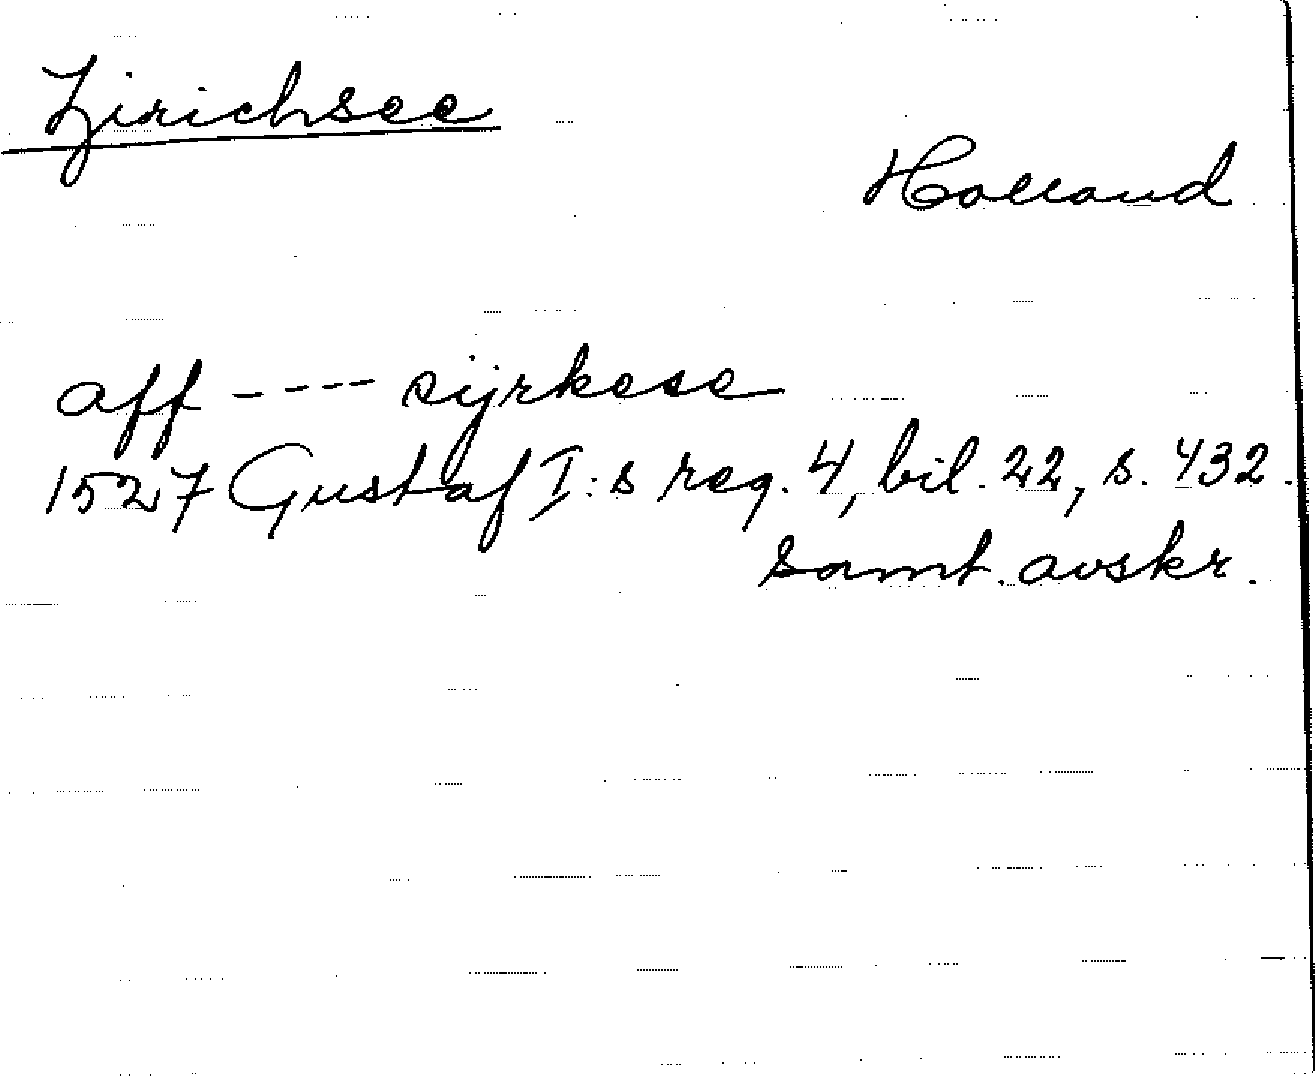 Zirichsee
Holland
aff ---- sijrkese
1527 Gustaf I:s reg. 4, bil. 22, s. 432.
samt. avskr.